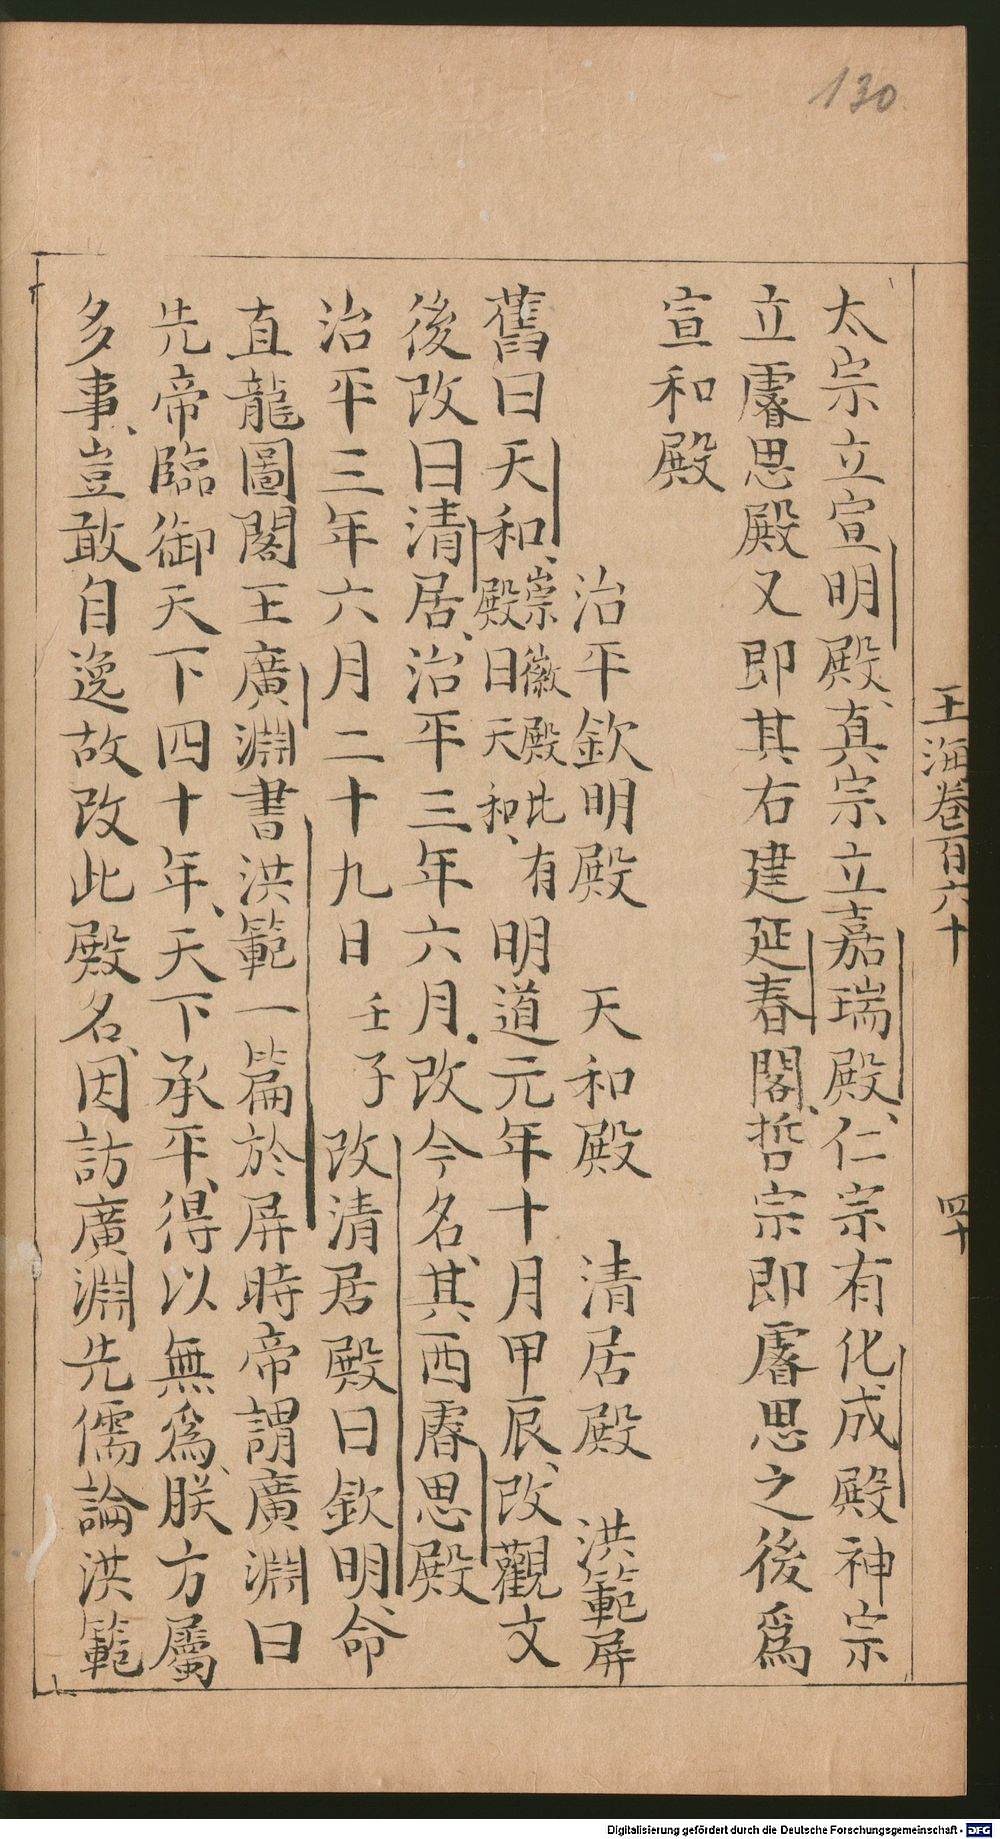 130
王海卷百六十
四十
太宗立宣明殿真宗立嘉瑞殿仁宗有化成殿神宗
立睿思殿又即其右建延春閣哲宗即睿思之後爲
宣和殿
治平欽明殿 天和殿 清居殿 洪範屏
舊曰天和崇徽殿比有殿曰天和明道元年十月甲辰改觀文
後改曰清居治平三年六月改今名其西睿思殿
治平三年六月二十九日壬子改清居殿曰欽明命
直龍圖閣王廣淵書洪範一篇於屏時帝謂廣淵曰
先帝臨御天下四十年天下承平得以無爲朕方屬
多事豈敢自逸故改此殿名因訪廣淵先儒論洪範
Digitalisierung gefördert durch die Deutsche Forschungsgemeinschaft - DFG